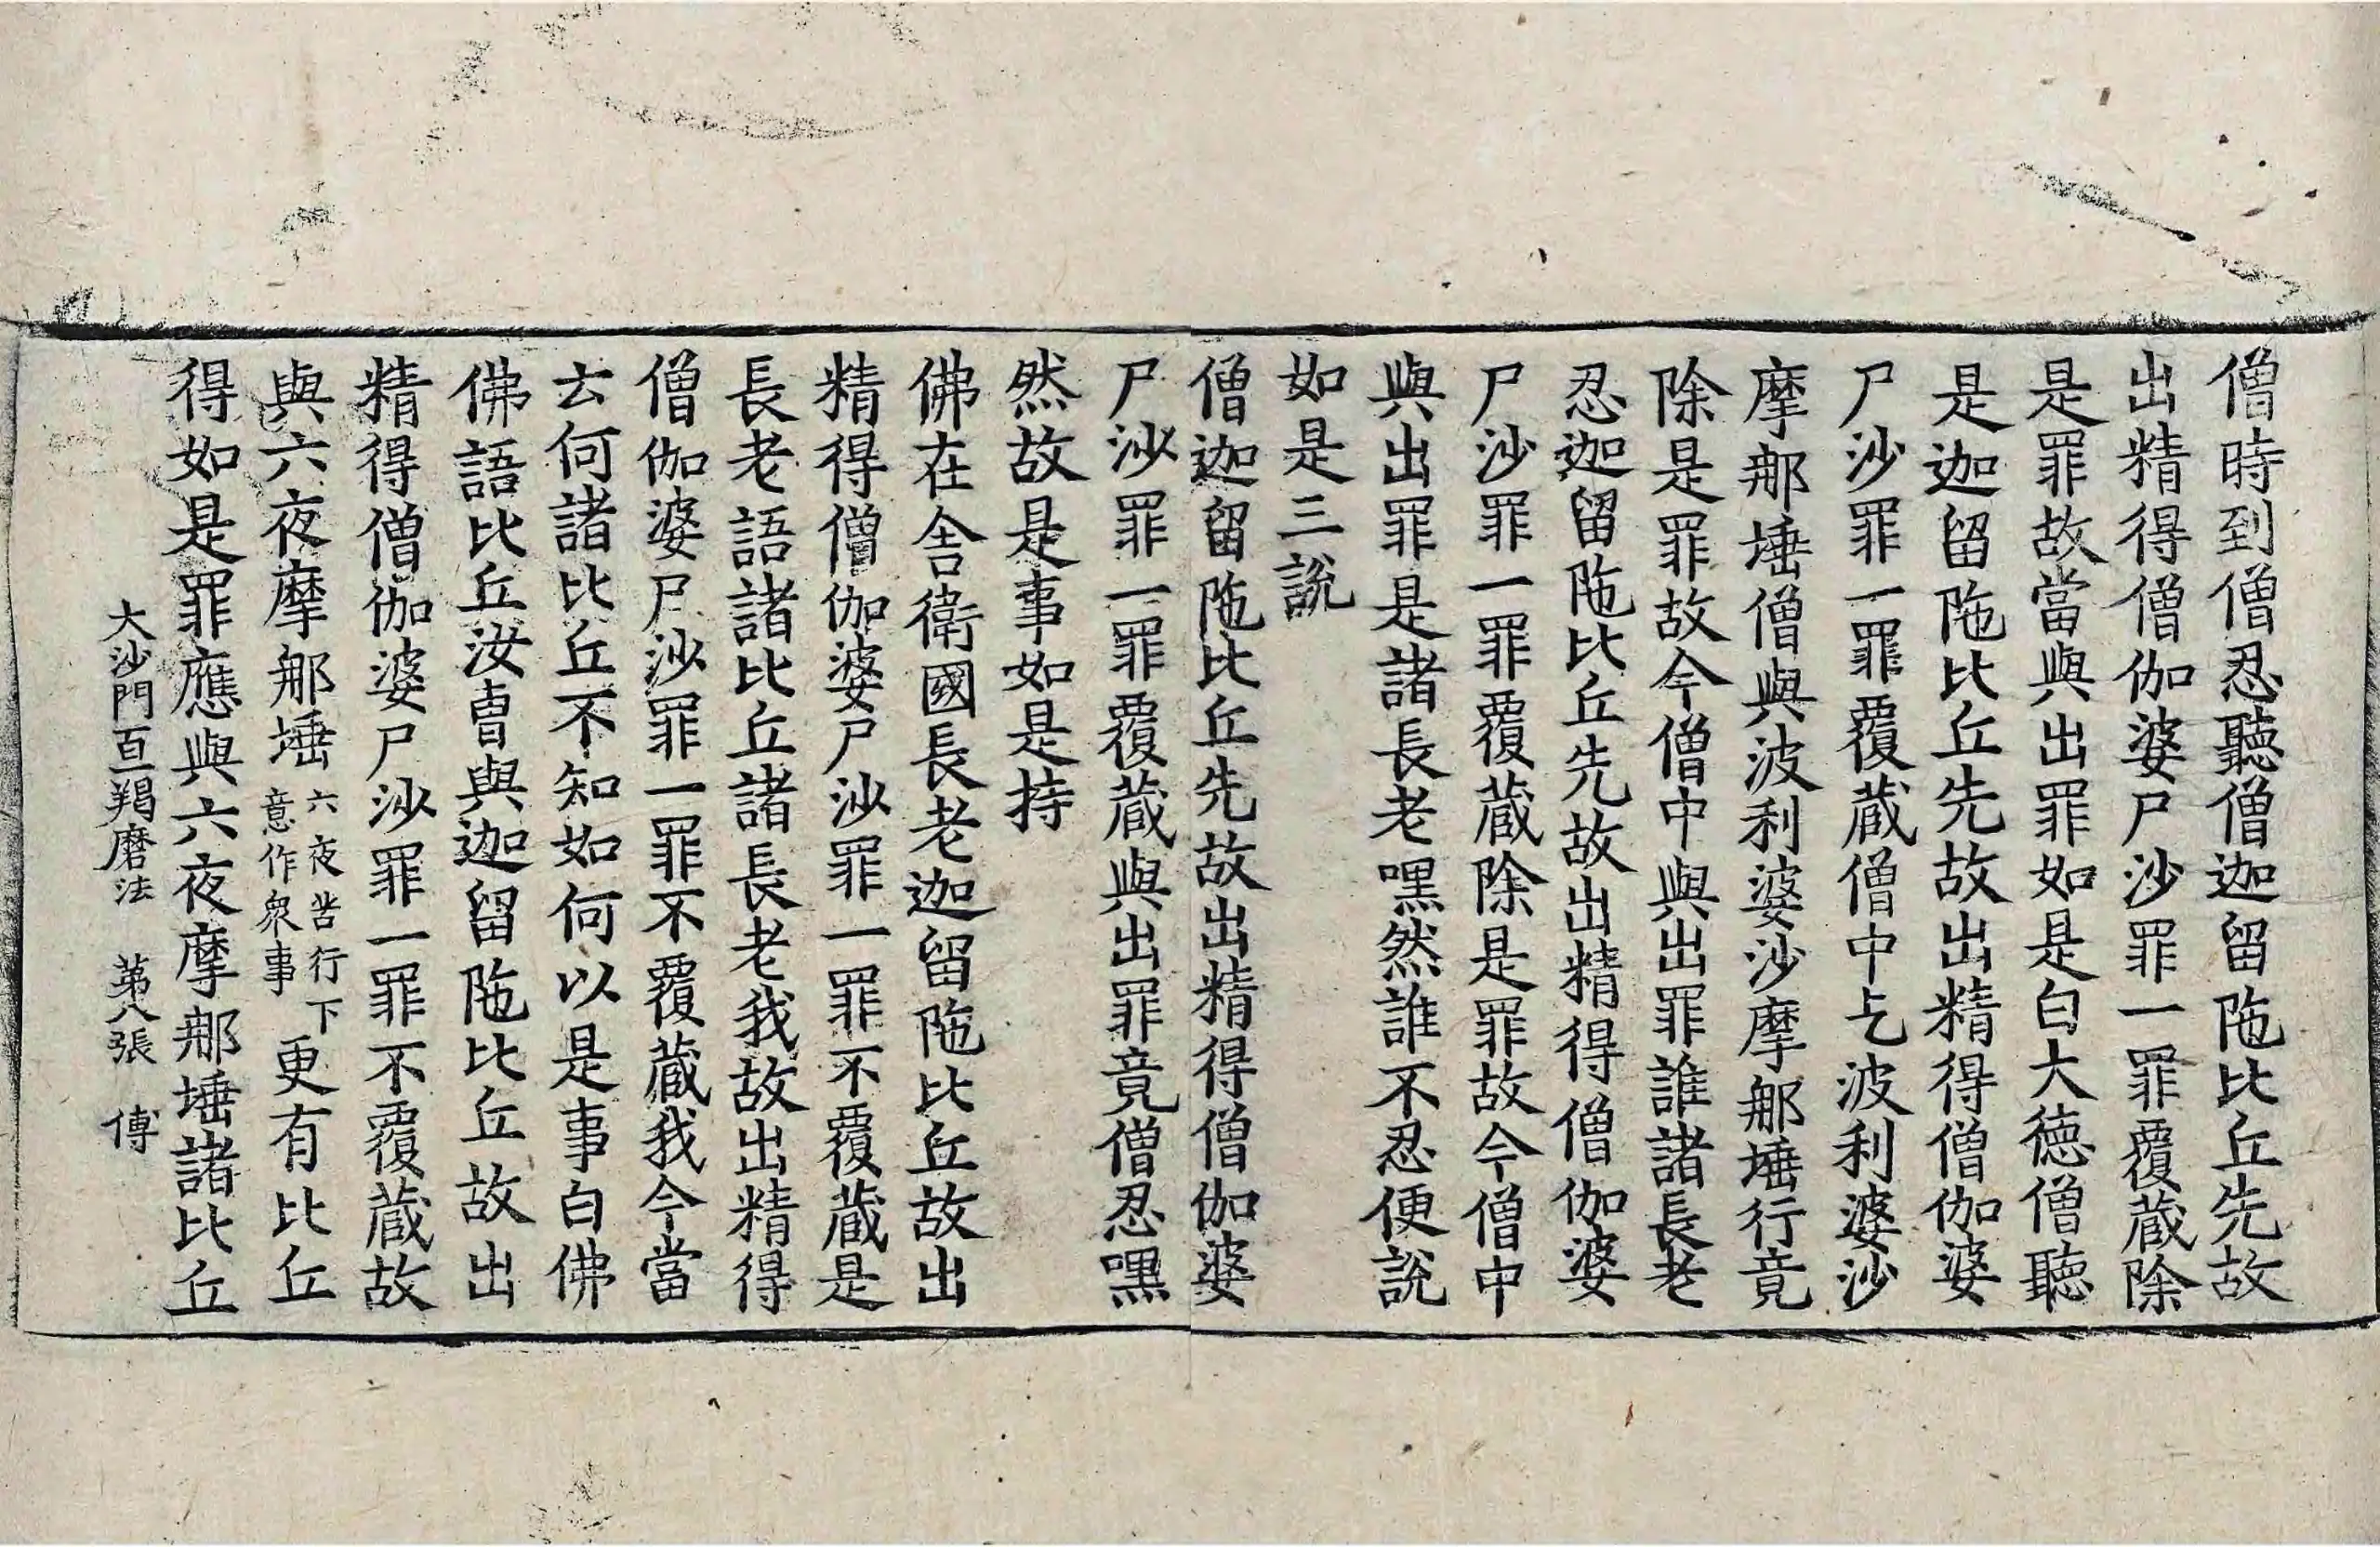 僧時到僧忍聽僧迦留陁比丘先故
出精得僧伽婆尸沙罪一罪覆蔵除
是罪故當與出罪如是白大徳僧聽
是迦留陁比丘先故出精得僧伽婆
尸沙罪一罪覆蔵僧中乞波利婆沙
摩那埵僧與波利婆沙摩那埵行竟
除是罪故今僧中與出罪誰諸長老
忍迦留陁比丘先故出精得僧伽婆
尸沙罪一罪覆蔵除是罪故今僧中
與出罪是諸長老嘿然誰不忍便說
如是三說
僧迦留陁比丘先故出精得僧伽婆
尸沙罪一罪覆蔵與出罪竟僧忍嘿
然故是事如是持
佛在舎衛國長老迦留陁比丘故出
精得僧伽婆尸沙罪一罪不覆蔵是
長老語諸比丘諸長老我故出精得
僧伽婆尸沙罪一罪不覆蔵我今當
云何諸比丘不知如何以是事白佛
佛語比丘汝曺與迦留陁比丘故出
精得僧伽婆尸沙罪一罪不覆蔵故
與六夜摩那埵六夜苦行下意作衆事更有比丘
得如是罪應與六夜摩那埵諸比丘
大沙門百羯磨法 苐八張 傅